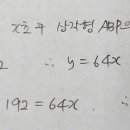 x초 후 삼각형 ABP의
2 ∴ y = 64x
192 = 64x . ∴